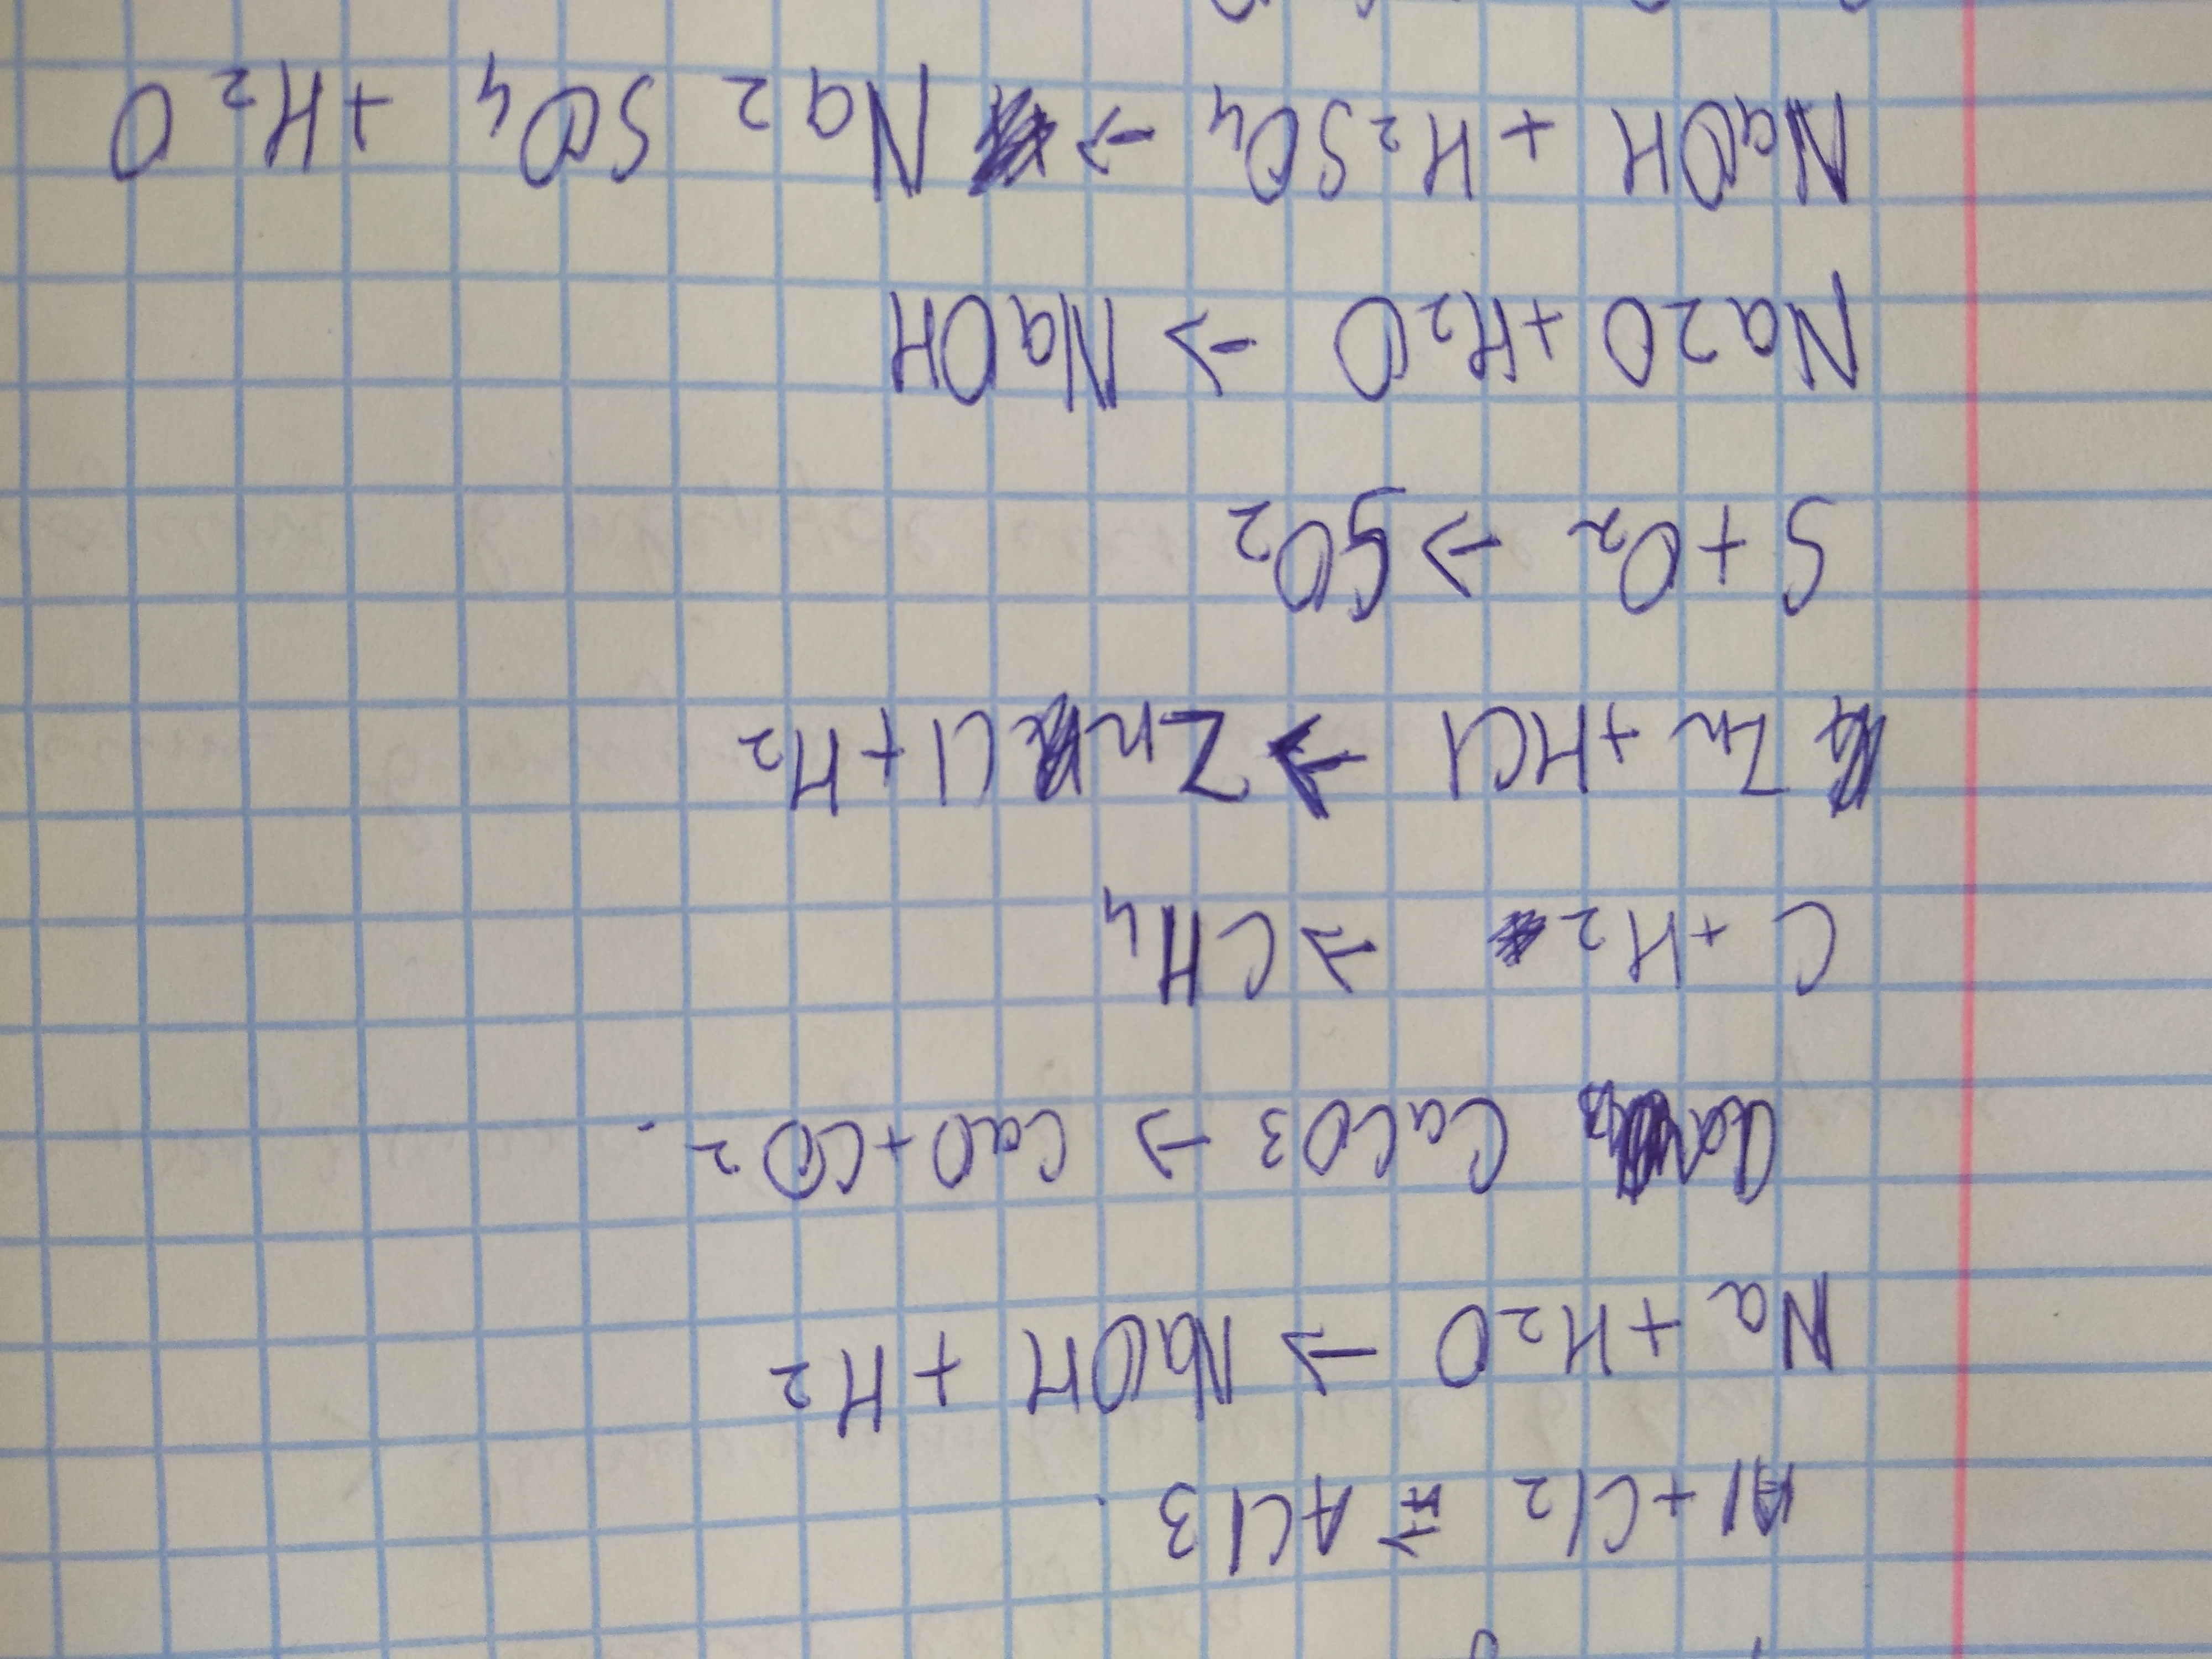 Al + Cl2 → ACl3
Na + H2O → NaOH + H2
CaCO3 → CaO + CO2
C + H2 → CH4
Zn + HCl → ZnCl + H2
S + O2 → SO2
Na2O + H2O → NaOH
NaOH + H2SO4 → Na2SO4 + H2O